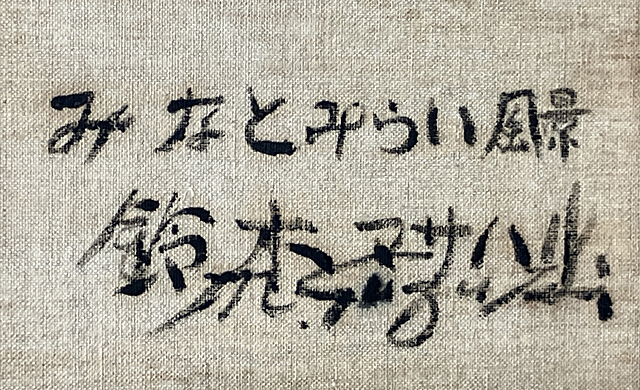 みなとみらい風景
鈴木